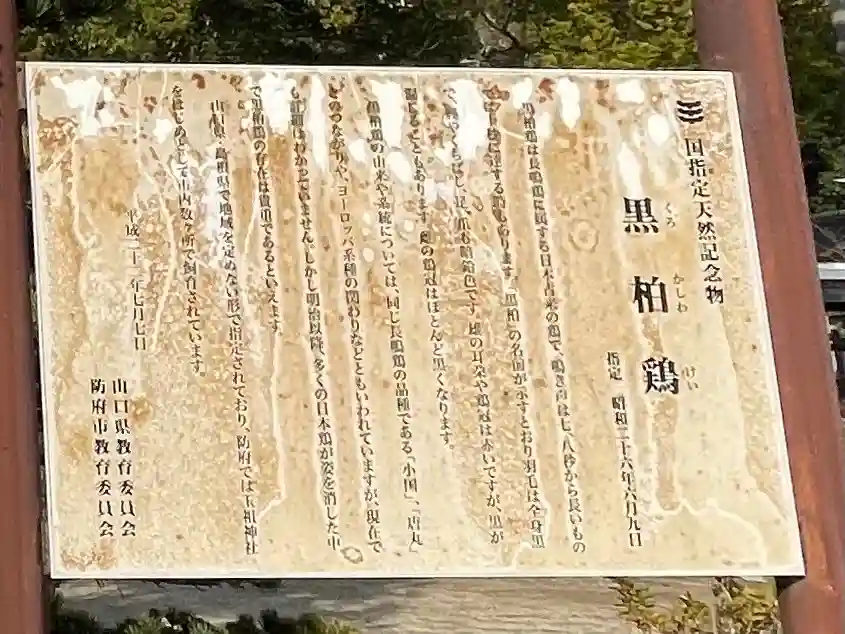 国指定天然記念物
黒柏鶏
くろ かしわ けい
指定 昭和二十六年六月九日
黒柏鶏は長鳴鶏に属する日本古来の鶏で、鳴き声は七、八秒から長いもの
では十秒に達する鶏もあります。「黒柏」の名前が示すとおり羽毛は全身黒
で、くちばし、足、爪も暗鉛色です。雄の耳朶や鶏冠は赤いですが、黒が
混じることもあります。雌の鶏冠はほとんど黒くなります。
黒柏鶏の由来や系統については、同じ長鳴鶏の品種である「小国」、「唐丸」
とのつながりや、ヨーロッパ系種の関わりなどともいわれていますが、現在で
も詳細はわかっていません。しかし明治以降、多くの日本鶏が姿を消した中
で黒柏鶏の存在は貴重であるといえます。
山口県・島根県で地域を定めない形で指定されており、防府では玉祖神社
をはじめとして市内数ヶ所で飼育されています。
平成二十一年七月七日
山口県教育委員会
防府市教育委員会